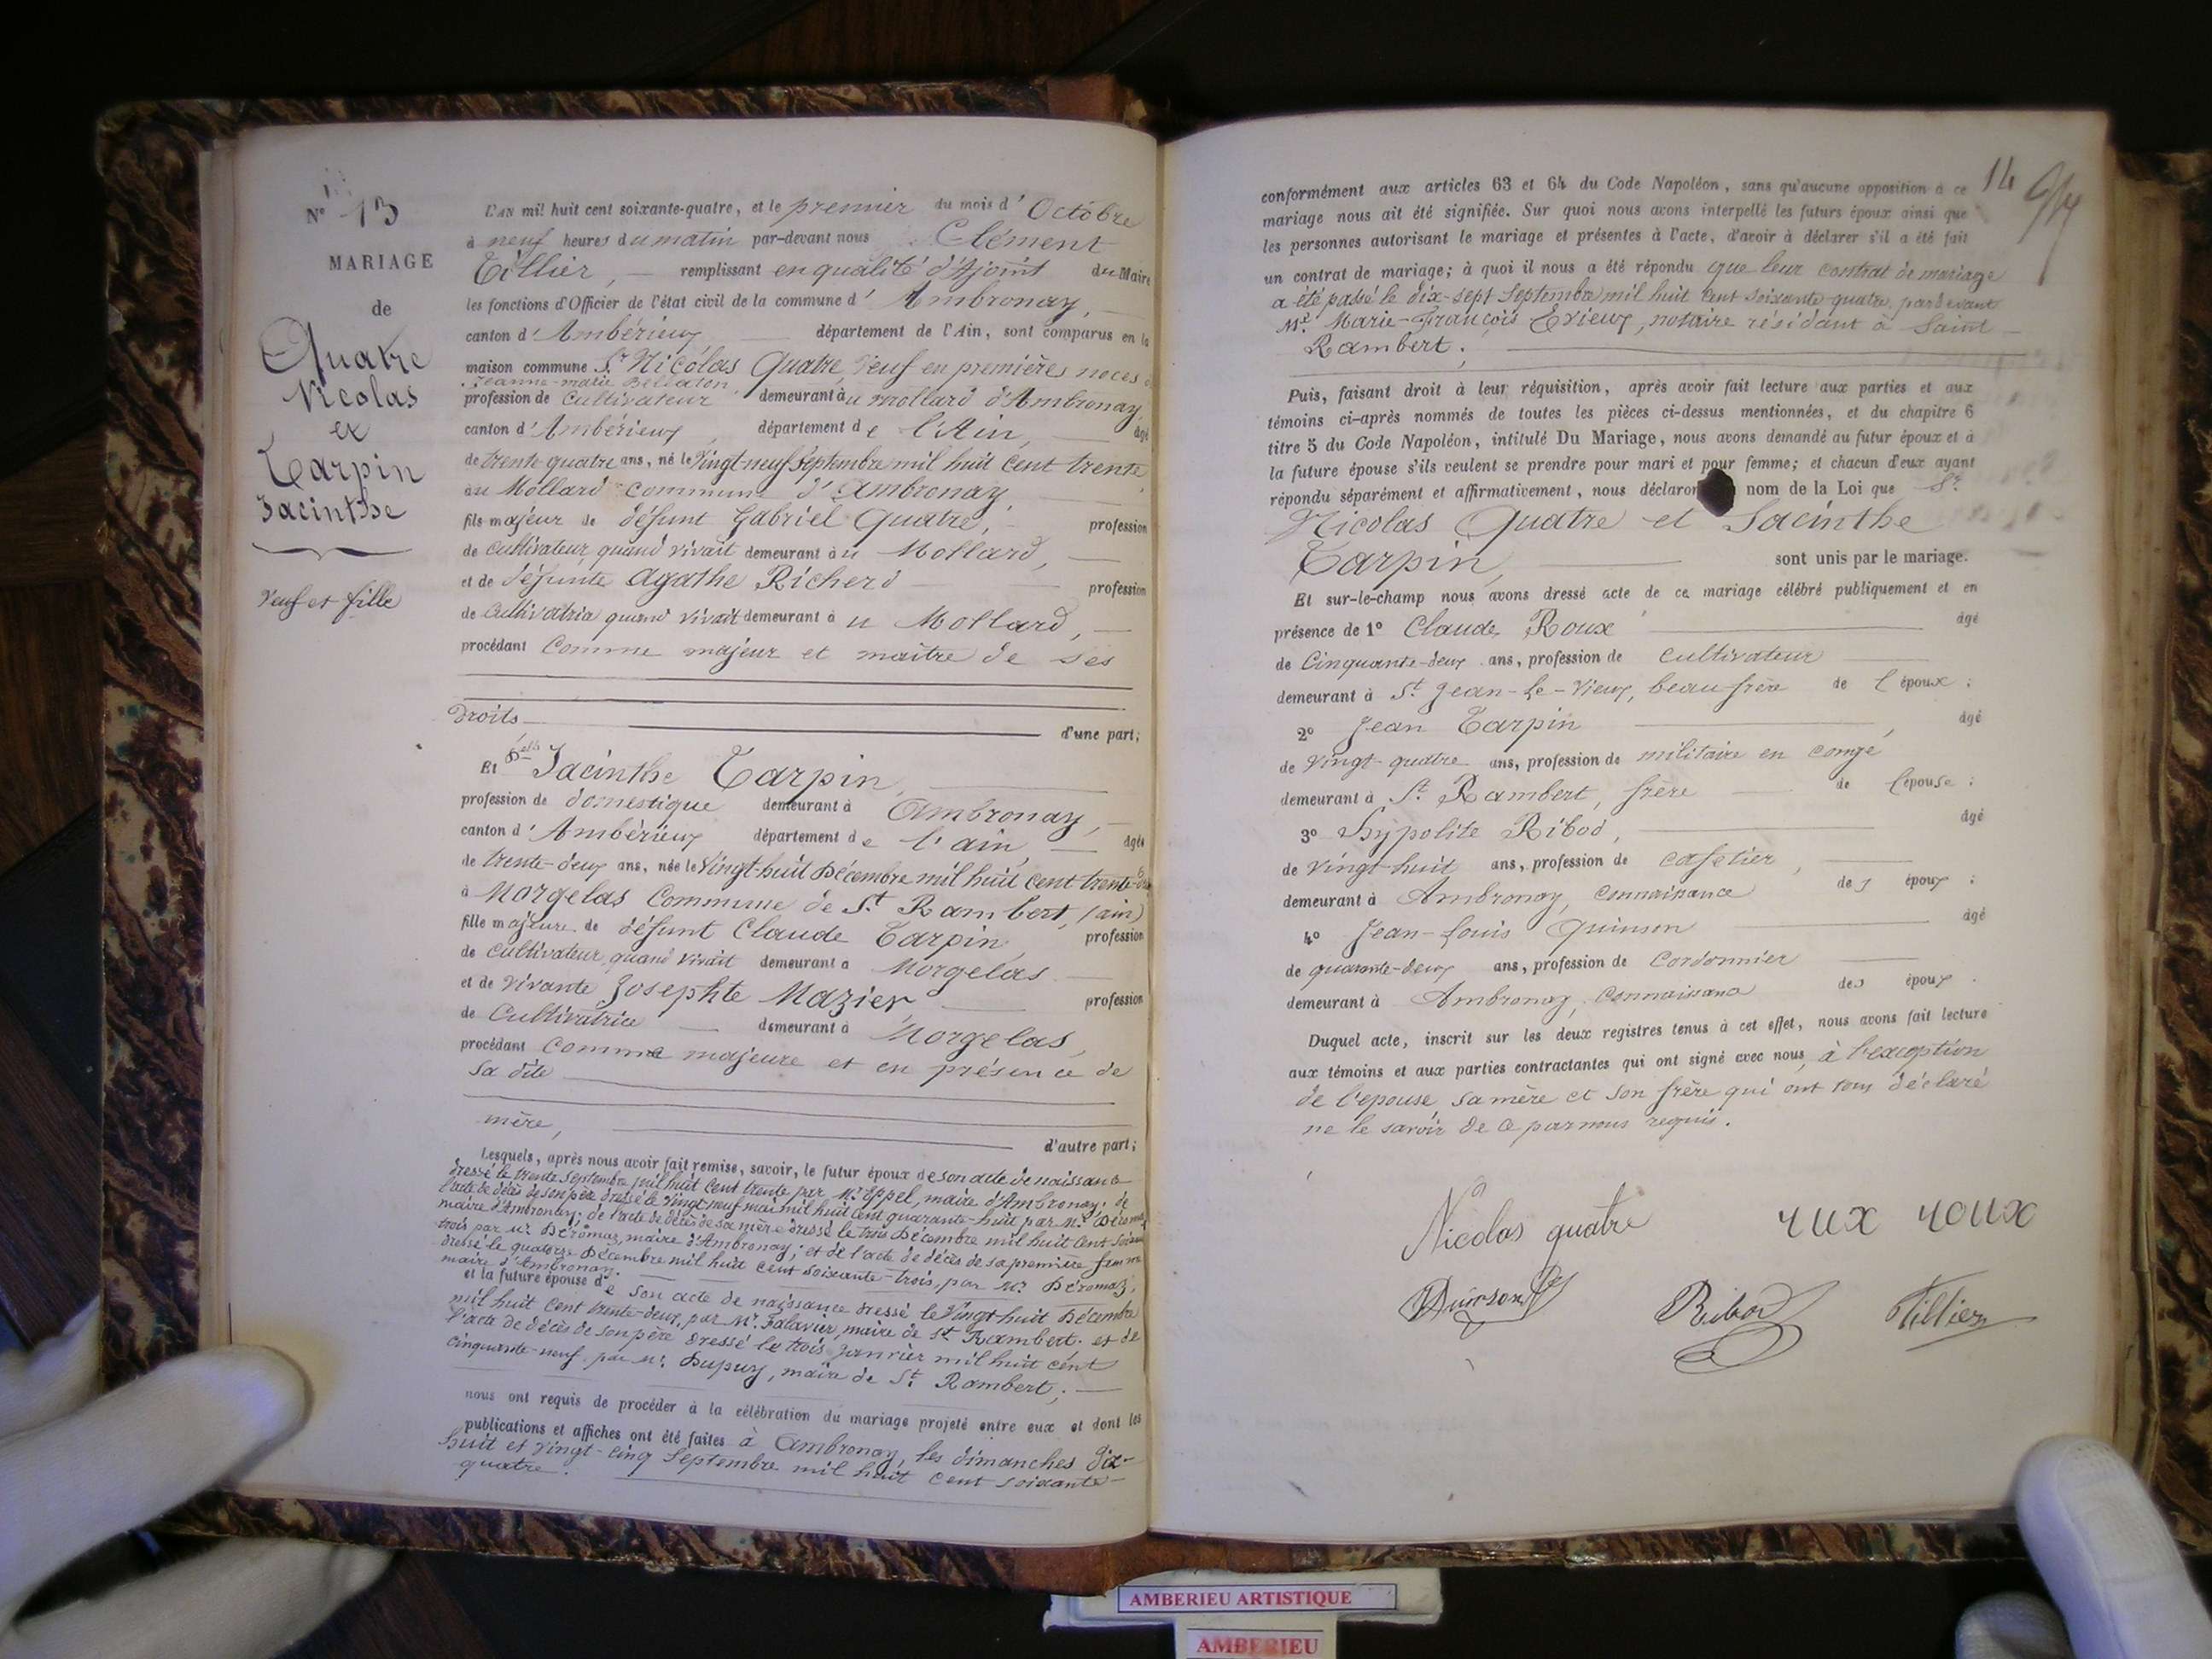 N° 13
MARIAGE
de
Quatre
Nicolas
et
Tarpin
Jacinthe
Veuf et fille
L'AN mil huit cent soixante-quatre, et le premier du mois d'Octobre
à neuf heures du matin par-devant nous Clément
Tillier, remplissant en qualité d'Ajoint du Maire
les fonctions d'Officier de l'état civil de la commune d'Ambronay,
canton d'Ambérieux département de l'Ain, sont comparus en la
maison commune Sr Nicolas Quatre, Veuf en premières noces
Jeanne-marie Bellaton
profession de Cultivateur demeurant au mollard d'Ambronay
canton d'Ambérieux, département de l'Ain, âgé
de trente quatre ans, né le Vingt-neuf Septembre mil huit cent trente
au Mollard Commune d'Ambronay,
fils majeur de défunt Gabriel Quatre, profession
de Cultivateur quand vivait demeurant au Mollard,
et de défunte Agathe Richerd profession
de Cultivatrice quand vivait demeurant au Mollard,
procédant Comme majeur et maître de ses
Droits d'une part;
Et Delle Jacinthe Tarpin,
profession de domestique demeurant à Ambronay,
canton d'Ambérieux département de l'ain, âgée
de trente-deux ans, née le Vingt-huit Décembre mil huit cent trente-
à Morgelas Commune de St Rambert, (ain)
fille majeure de défunt Claude Tarpin, profession
de Cultivateur quand vivait demeurant à Morgelas
et de vivante Josephte Mazier profession
de Cultivatrice demeurant à Morgelas,
procédant Comme majeure et en présence de
Sa dite
mère, d'autre part;
Lesquels, après nous avoir fait remise, savoir, le futur époux de son acte de naissance
dressé le trente Septembre mil huit Cent trente par Mr Eppel, maire d'Ambronay; de
l'acte de décès de son père dressé le Vingt neuf mai mil huit cent quarante-huit par Mr
maire d'Ambronay; de l'acte de décès de sa mère dressé le trois Décembre mil huit Cent soixante
trois par Mr Déromas, maire d'Ambronay; et de l'acte de décès de sa première femme
dressé le quatorze Décembre mil huit cent soixante-trois, par Mr Déromas,
maire d'Ambronay.
et la future épouse de son acte de naissance dressé le Vingt huit Décembre
mil huit cent trente-deux, par Mr Falavier, maire de St Rambert. et de
l'acte de décès de son père dressé le trois Janvier mil huit cent
cinquante-neuf, par Mr Dupuy, maire de St Rambert;
nous ont requis de procéder à la célébration du mariage projeté entre eux et dont les
publications et affiches ont été faites à Ambronay, les dimanches dix-
huit et vingt-cinq Septembre mil huit cent soixante-
quatre.
14
conformément aux articles 63 et 64 du Code Napoléon, sans qu'aucune opposition à ce
mariage nous ait été signifiée. Sur quoi nous avons interpellé les futurs époux ainsi que
les personnes autorisant le mariage et présentes à l'acte, d'avoir à déclarer s'il a été fait
un contrat de mariage; à quoi il nous a été répondu que leur contrat de mariage
a été passé le dix-sept Septembre mil huit cent soixante-quatre, pardevant
Me Marie-François Evieux, notaire résidant à Saint
Rambert.
Puis, faisant droit à leur réquisition, après avoir fait lecture aux parties et aux
témoins ci-après nommés de toutes les pièces ci-dessus mentionnées, et du chapitre 6
titre 5 du Code Napoléon, intitulé Du Mariage, nous avons demandé au futur époux et à
la future épouse s'ils veulent se prendre pour mari et pour femme; et chacun d'eux ayant
répondu séparément et affirmativement, nous déclaron nom de la Loi que Sr
Nicolas Quatre et Jacinthe
Tarpin, sont unis par le mariage.
Et sur-le-champ nous avons dressé acte de ce mariage célébré publiquement et en
présence de 1° Claude Roux âgé
de Cinquante-deux ans, profession de Cultivateur
demeurant à St Jean-Le-Vieux, beau frère de l'époux;
2° Jean Tarpin, âgé
de Vingt-quatre ans, profession de militaire en congé
demeurant à St Rambert, frère de l'épouse;
3° Hypolite Ribod, âgé
de Vingt-huit ans, profession de cafetier,
demeurant à Ambronay, Connaissance des époux;
4° Jean-Louis Quinson âgé
de quarante-deux ans, profession de Cordonnier
demeurant à Ambronay, Connaissance des époux.
Duquel acte, inscrit sur les deux registres tenus à cet effet, nous avons fait lecture
aux témoins et aux parties contractantes qui ont signé avec nous, à l'exception
de l'epouse sa mère et son frère qui ont tous déclaré
ne le savoir de ce par nous requis.
Nicolas quatre rux roux
Quinson Ribod Tillier
AMBERIEU ARTISTIQUE
AMBERIEU